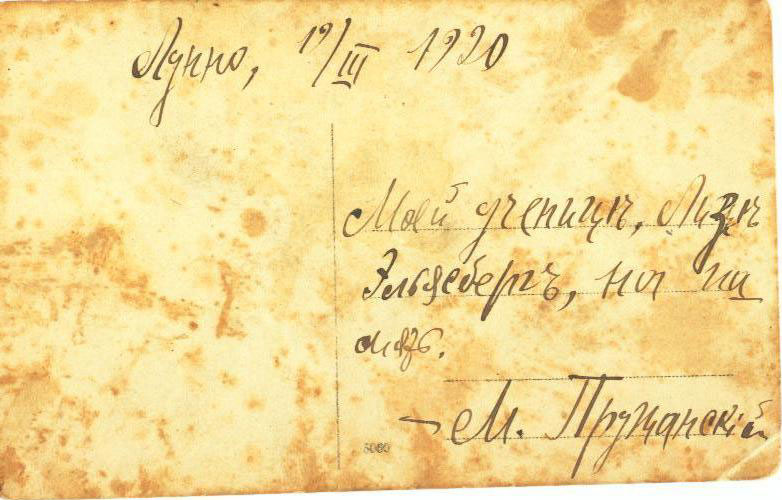 Лунно, 19/III 1920
Моей ученицѣ, Лизѣ
Эльясбергъ, на па
мять.
— М. Пружанскій
5060